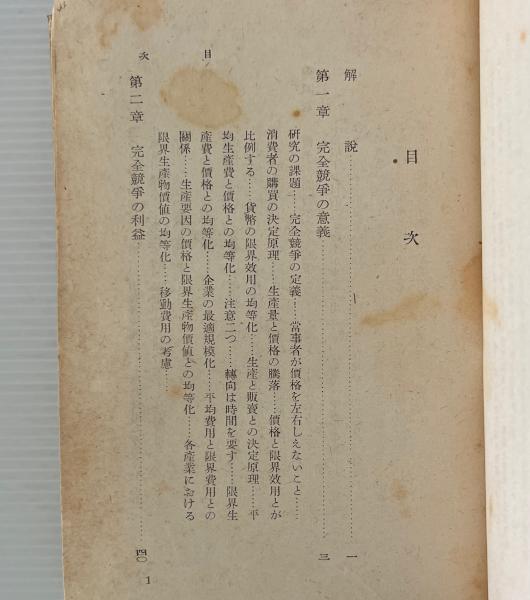 目次
解説……………………一
第一章　完全競爭の意義……………………三
硏究の課題……完全競爭の定義……當事者が價格を左右しえないこと……
消費者の購買の決定原理……生產量と價格の騰落……價格と限界效用とが
比例する……貨幣の限界效用の均等化……生產と販賣との決定原理……平
均生產費と價格との均等化……注意二つ……轉向は時間を要す……限界生
產費と價格との均等化……企業の最適規模化……平均費用と限界費用との
關係……生產要因の價格と限界生產物價値との均等化……各產業における
限界生產物價値の均等化……移動費用の考慮……
第二章　完全競爭の利益……………………四〇
目次
1